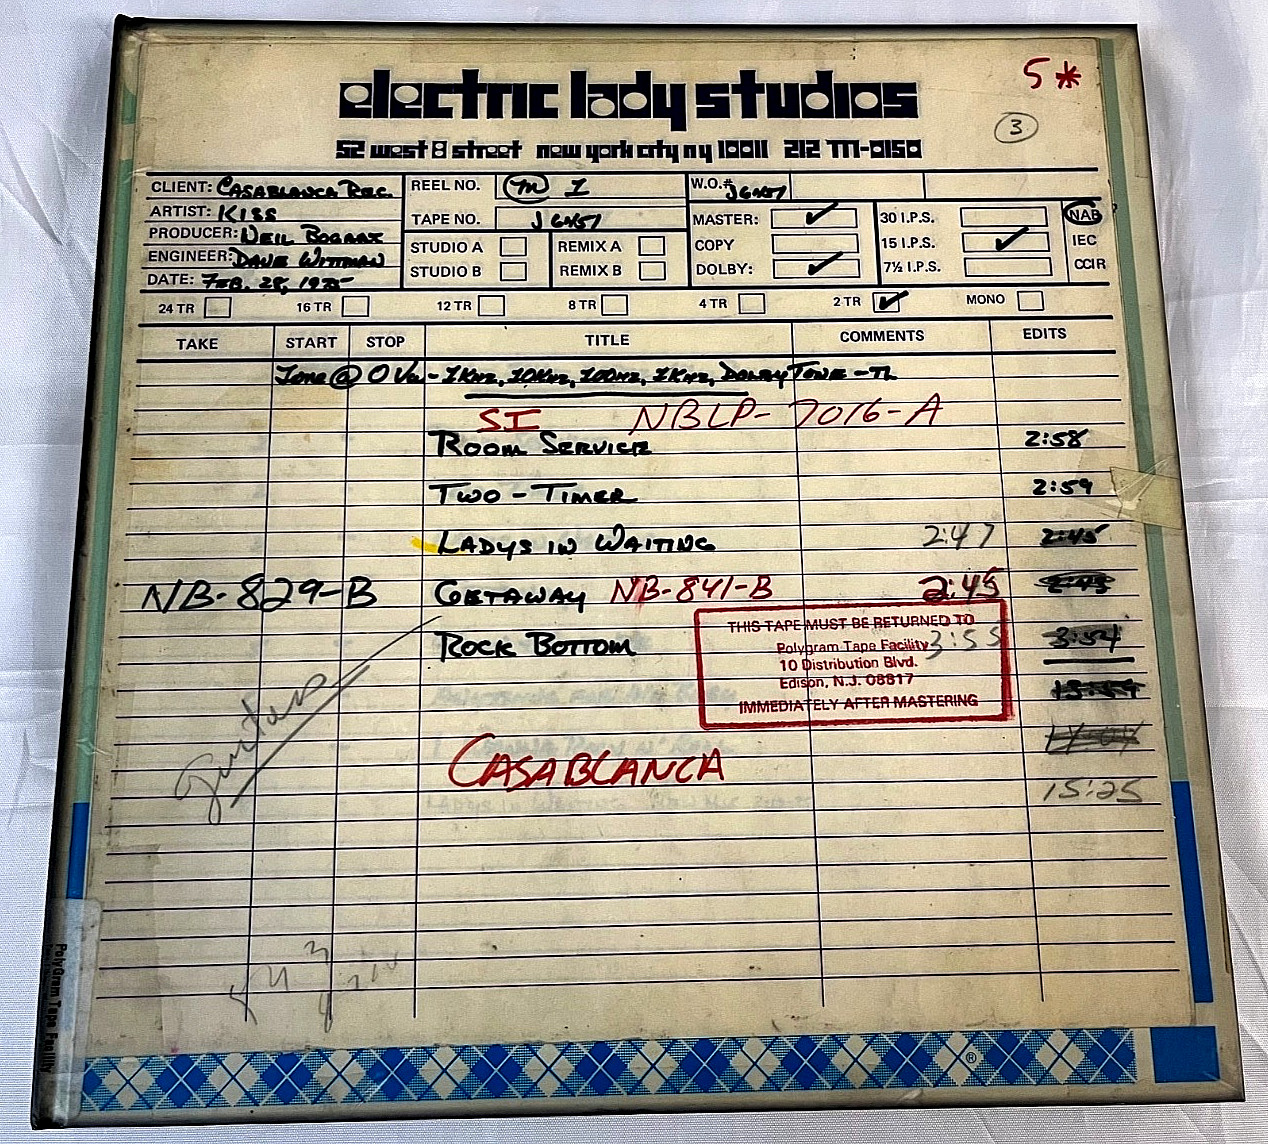 electric lady studios
5*
3
52 west 8 street new york city ny 10011 212 777-0150
CLIENT: CASABLANCA REC.
REEL NO. M 1
W.O.#
ARTIST: KISS
TAPE NO.
MASTER: ✓
30 I.P.S.
NAB
PRODUCER: NEIL BOGART
STUDIO A
REMIX A
COPY
15 I.P.S. ✓
IEC
ENGINEER: DAVE WITTMAN
STUDIO B
REMIX B
DOLBY: ✓
7½ I.P.S.
CCIR
DATE: FEB. 28, 1975
24 TR 16 TR 12 TR 8 TR 4 TR 2 TR ✓ MONO
TAKE START STOP TITLE COMMENTS EDITS
Tone @ 0 VU - 1KHz, 10KHz, 100Hz, 1KHz, DOLBY TONE -
SI NBLP-7016-A
ROOM SERVICE 2:58
TWO-TIMER 2:59
LADYS IN WAITING 2:47 2:45
NB-829-B GETAWAY NB-841-B 2:45
ROCK BOTTOM 3:55 3:54
THIS TAPE MUST BE RETURNED TO
Polygram Tape Facility
10 Distribution Blvd.
Edison, N.J. 08817
IMMEDIATELY AFTER MASTERING
CASABLANCA
15:25
PolyGram Tape Facility
®